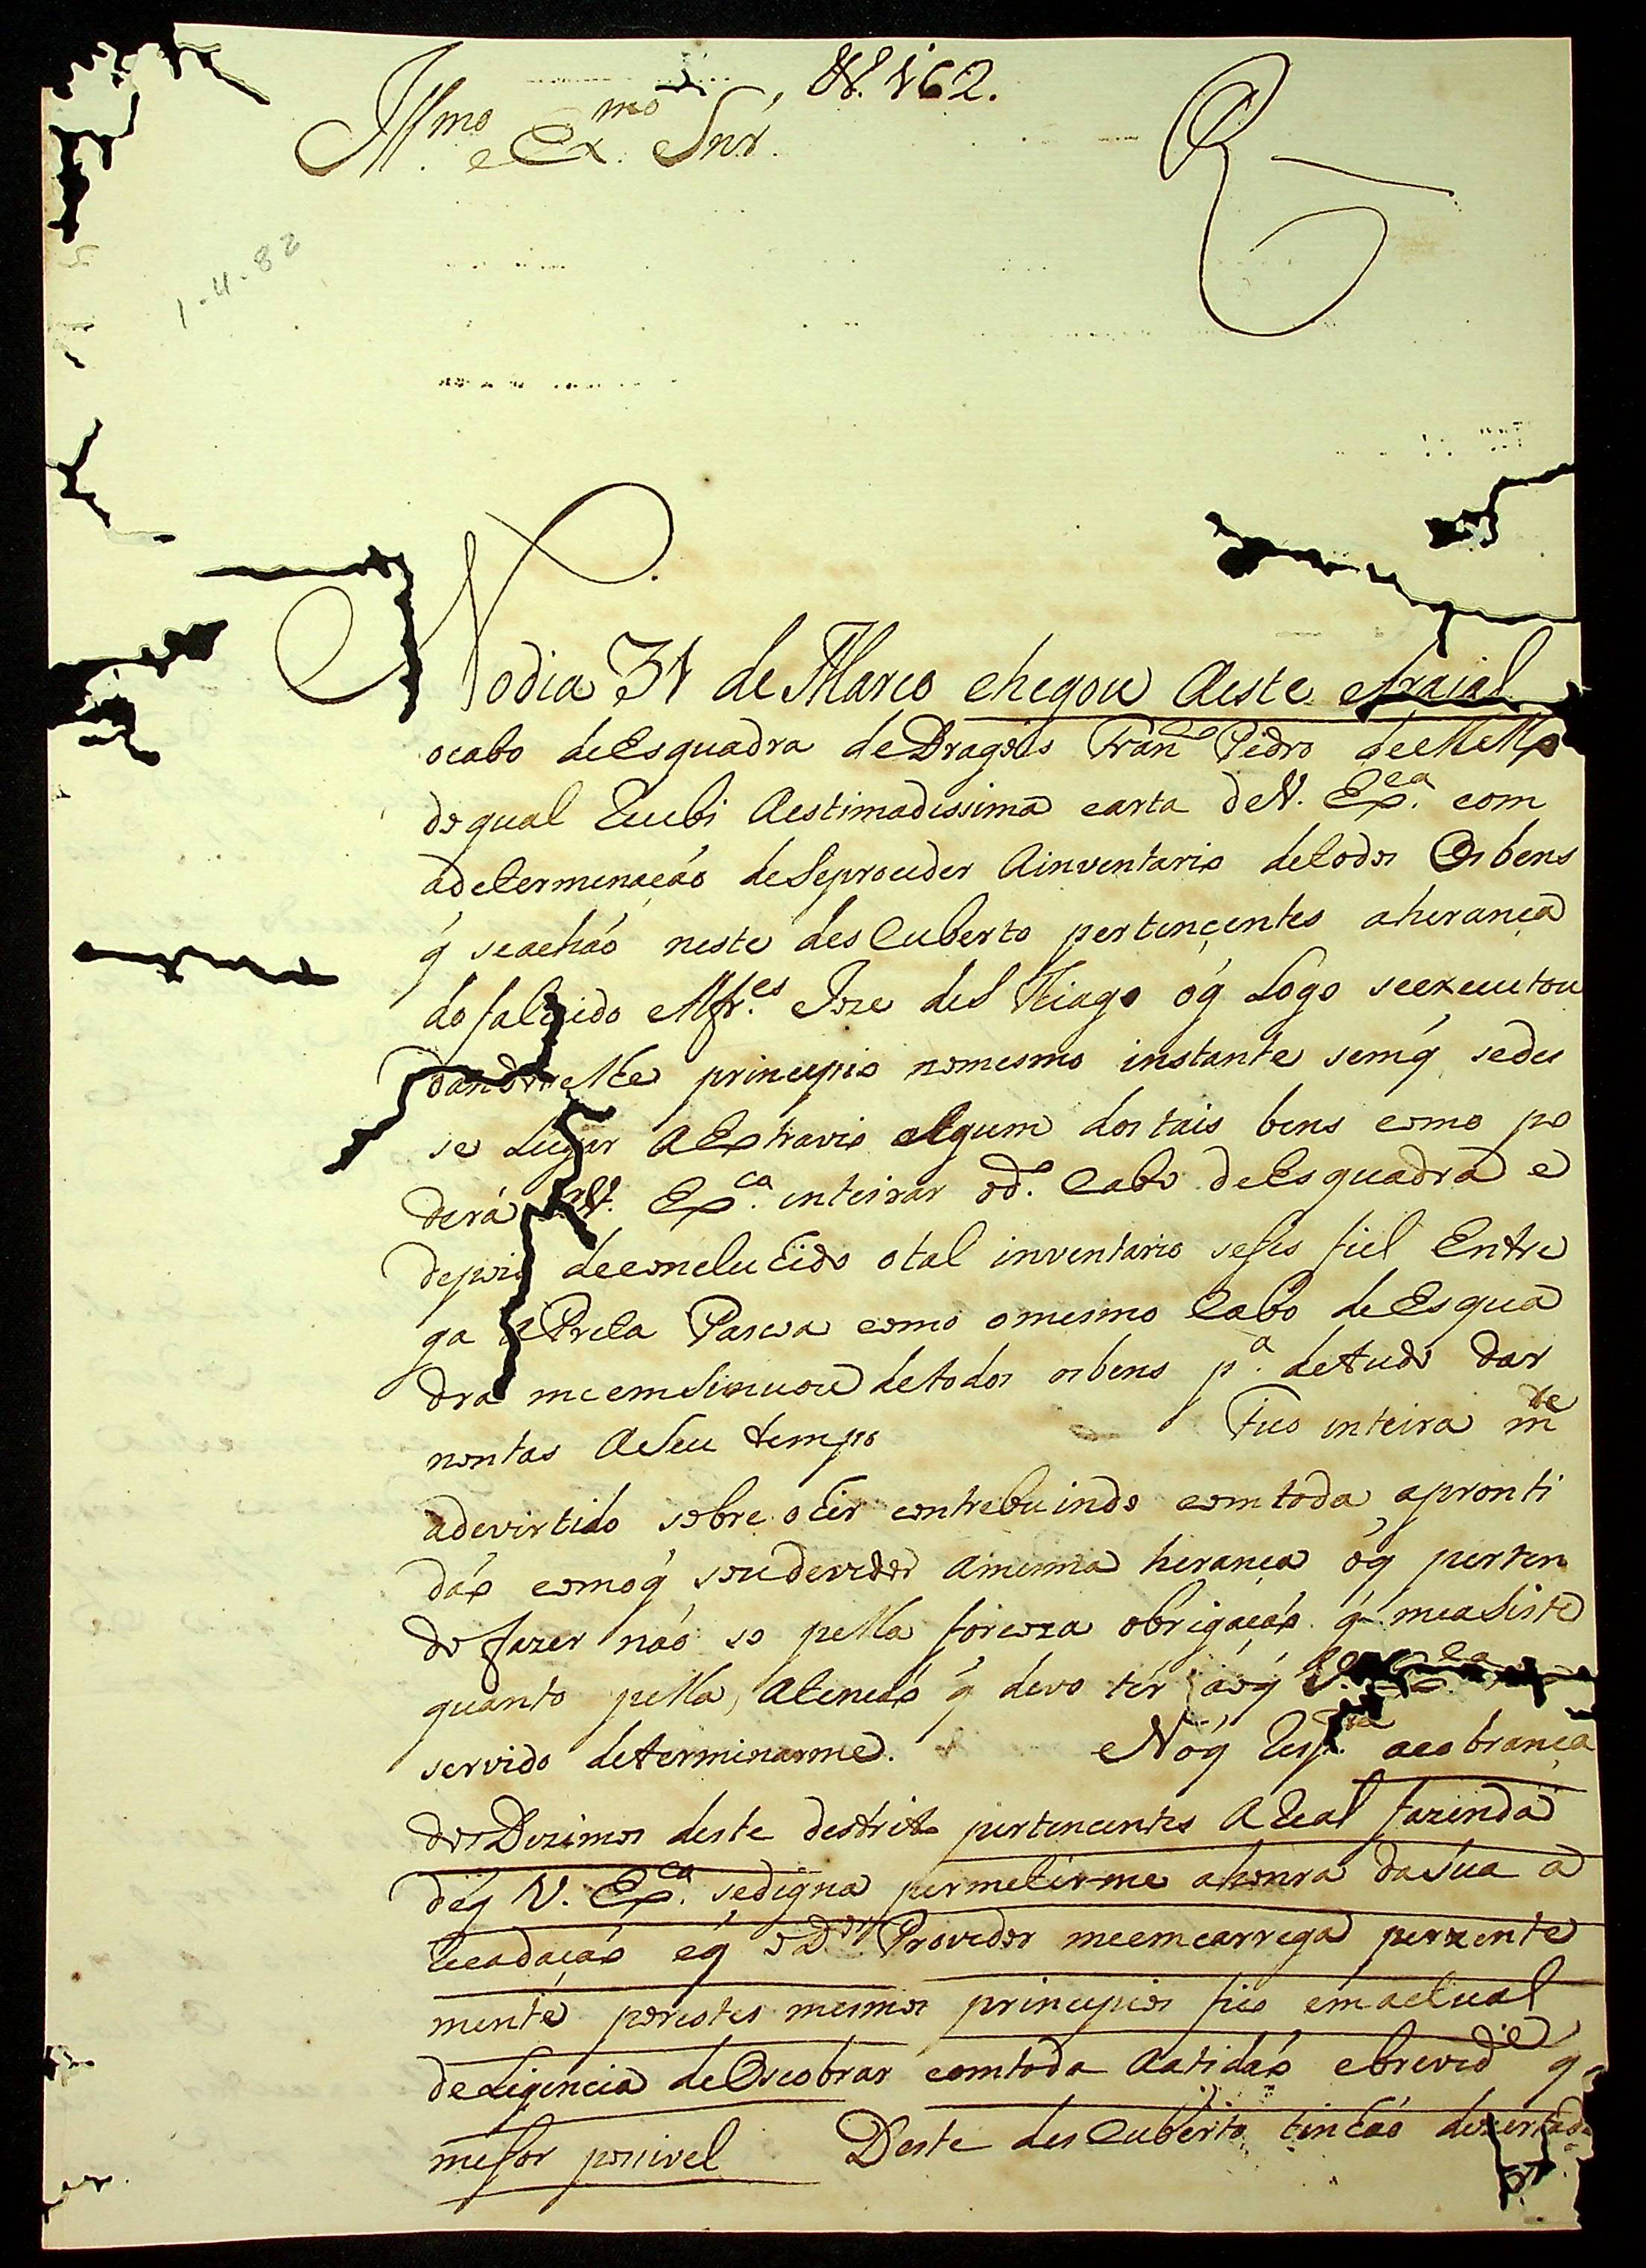 N. 162.
Ill.mo e Ex.mo Snr.
R
1-4-82
No dia 31 de Marco chegou aeste Arraial
ocabo deEsquadra deDragois Fran.co Pedro deMello
do qual Recebi aestimadissima carta deV. Ex.ca com
adetermenação deSeproceder ainventario detodos os bens
q̃ seachão neste desCuberto pertencentes aherança
do falecido Alfr.es Joze deS Thiago oq̃ Logo seexecutou
dandoselhe principio nomesmo instante semq̃ sedes
se Lugar aExtravio algum dos tais bens como po
derá V. Ex.ca inteirar od.o Cabo deEsquadra e
depois deconcluCido otal inventario sefes fiel Entre
ga aPreta Pascoa como omesmo Cabo deEsqua
dra meemSinuou detodos osbens p.a detudo dar
contas aSeu tempo Fico inteira m.de
adevirtido sobre oCir contrebuindo comtoda apronti
dão comoq̃ soudevedor amesma herança oq̃ perten
do fazer não so pella forcoza obrigação q̃ meaSiste
quanto pella atenção q̃ devo tér áoq̃ V. Ex.ca
servido determinarme. Noq̃ Resp.ta acobrança
dosDezimos deste destrito pertencentes aReal fazenda
deq̃ V. Ex.ca sedigna permetirme ahonra dasua a
Recadação eq̃ oD.or Provedor meemcarrega perzente
mente porestes mesmos principios fico emactual
deLigencia deOscobrar comtoda aatidão ebrevid.e q̃
mefor possivel Deste desCuberto tinCão dezertado